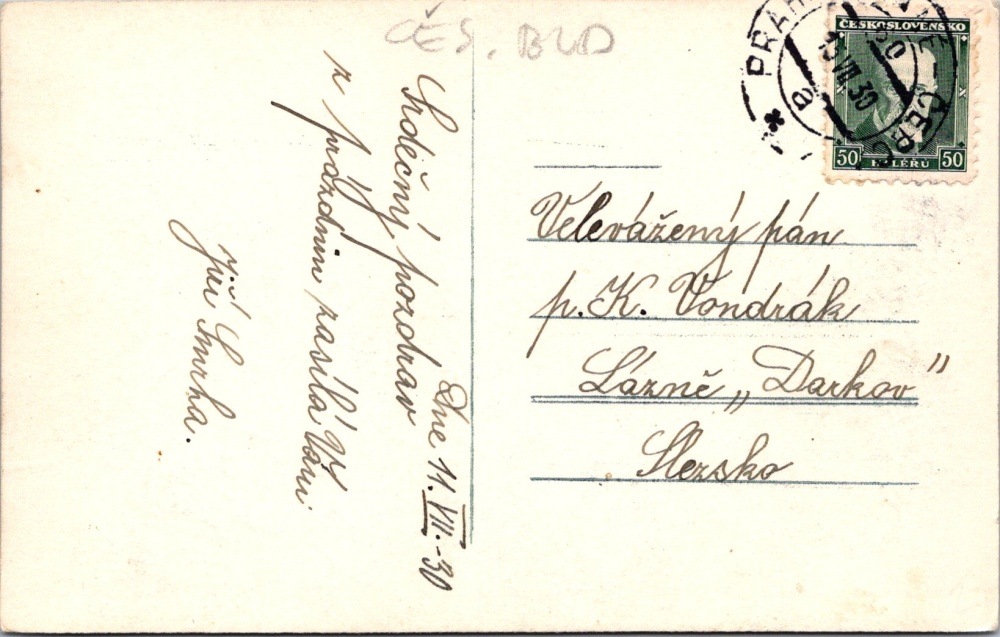 ČES. BUD
Dne 11. VII.-30
Srdečný pozdrav
z prázdnin zasílá Vám
Jiří Smrha.
ČESKOSLOVENSKO
50 HALÉŘŮ 50
13.VII.30
Velevážený pán
p. K. Vondrák
Lázně „Darkov"
Slezsko